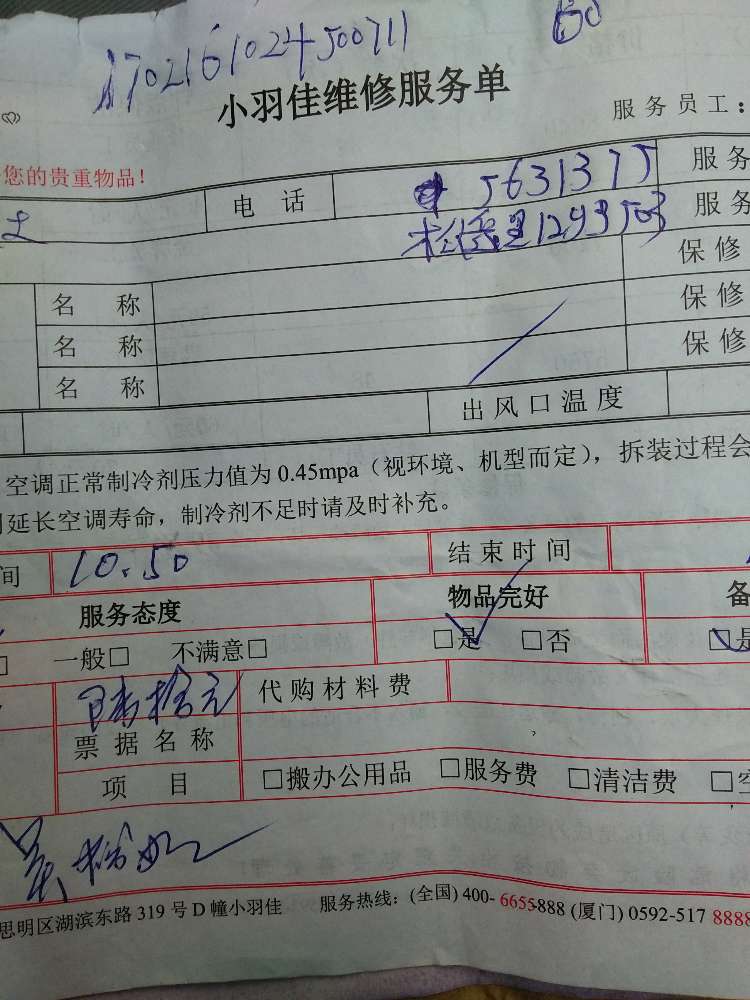 1702161024500711
60
小羽佳维修服务单
服务员工：
您的贵重物品！
电 话 5631375 服务
1293503 服务
保修
名 称 保修
名 称 保修
名 称
出风口温度
空调正常制冷剂压力值为 0.45mpa（视环境、机型而定），拆装过程会
延长空调寿命，制冷剂不足时请及时补充。
间 10.50 结束时间
服务态度 物品完好 备
□ 一般□ 不满意□ □是 □否 □是
拾元 代购材料费
票据名称
项 目 □搬办公用品 □服务费 □清洁费 □空
思明区湖滨东路 319 号 D 幢小羽佳 服务热线：(全国) 400- 6655-888 (厦门) 0592-517 8888